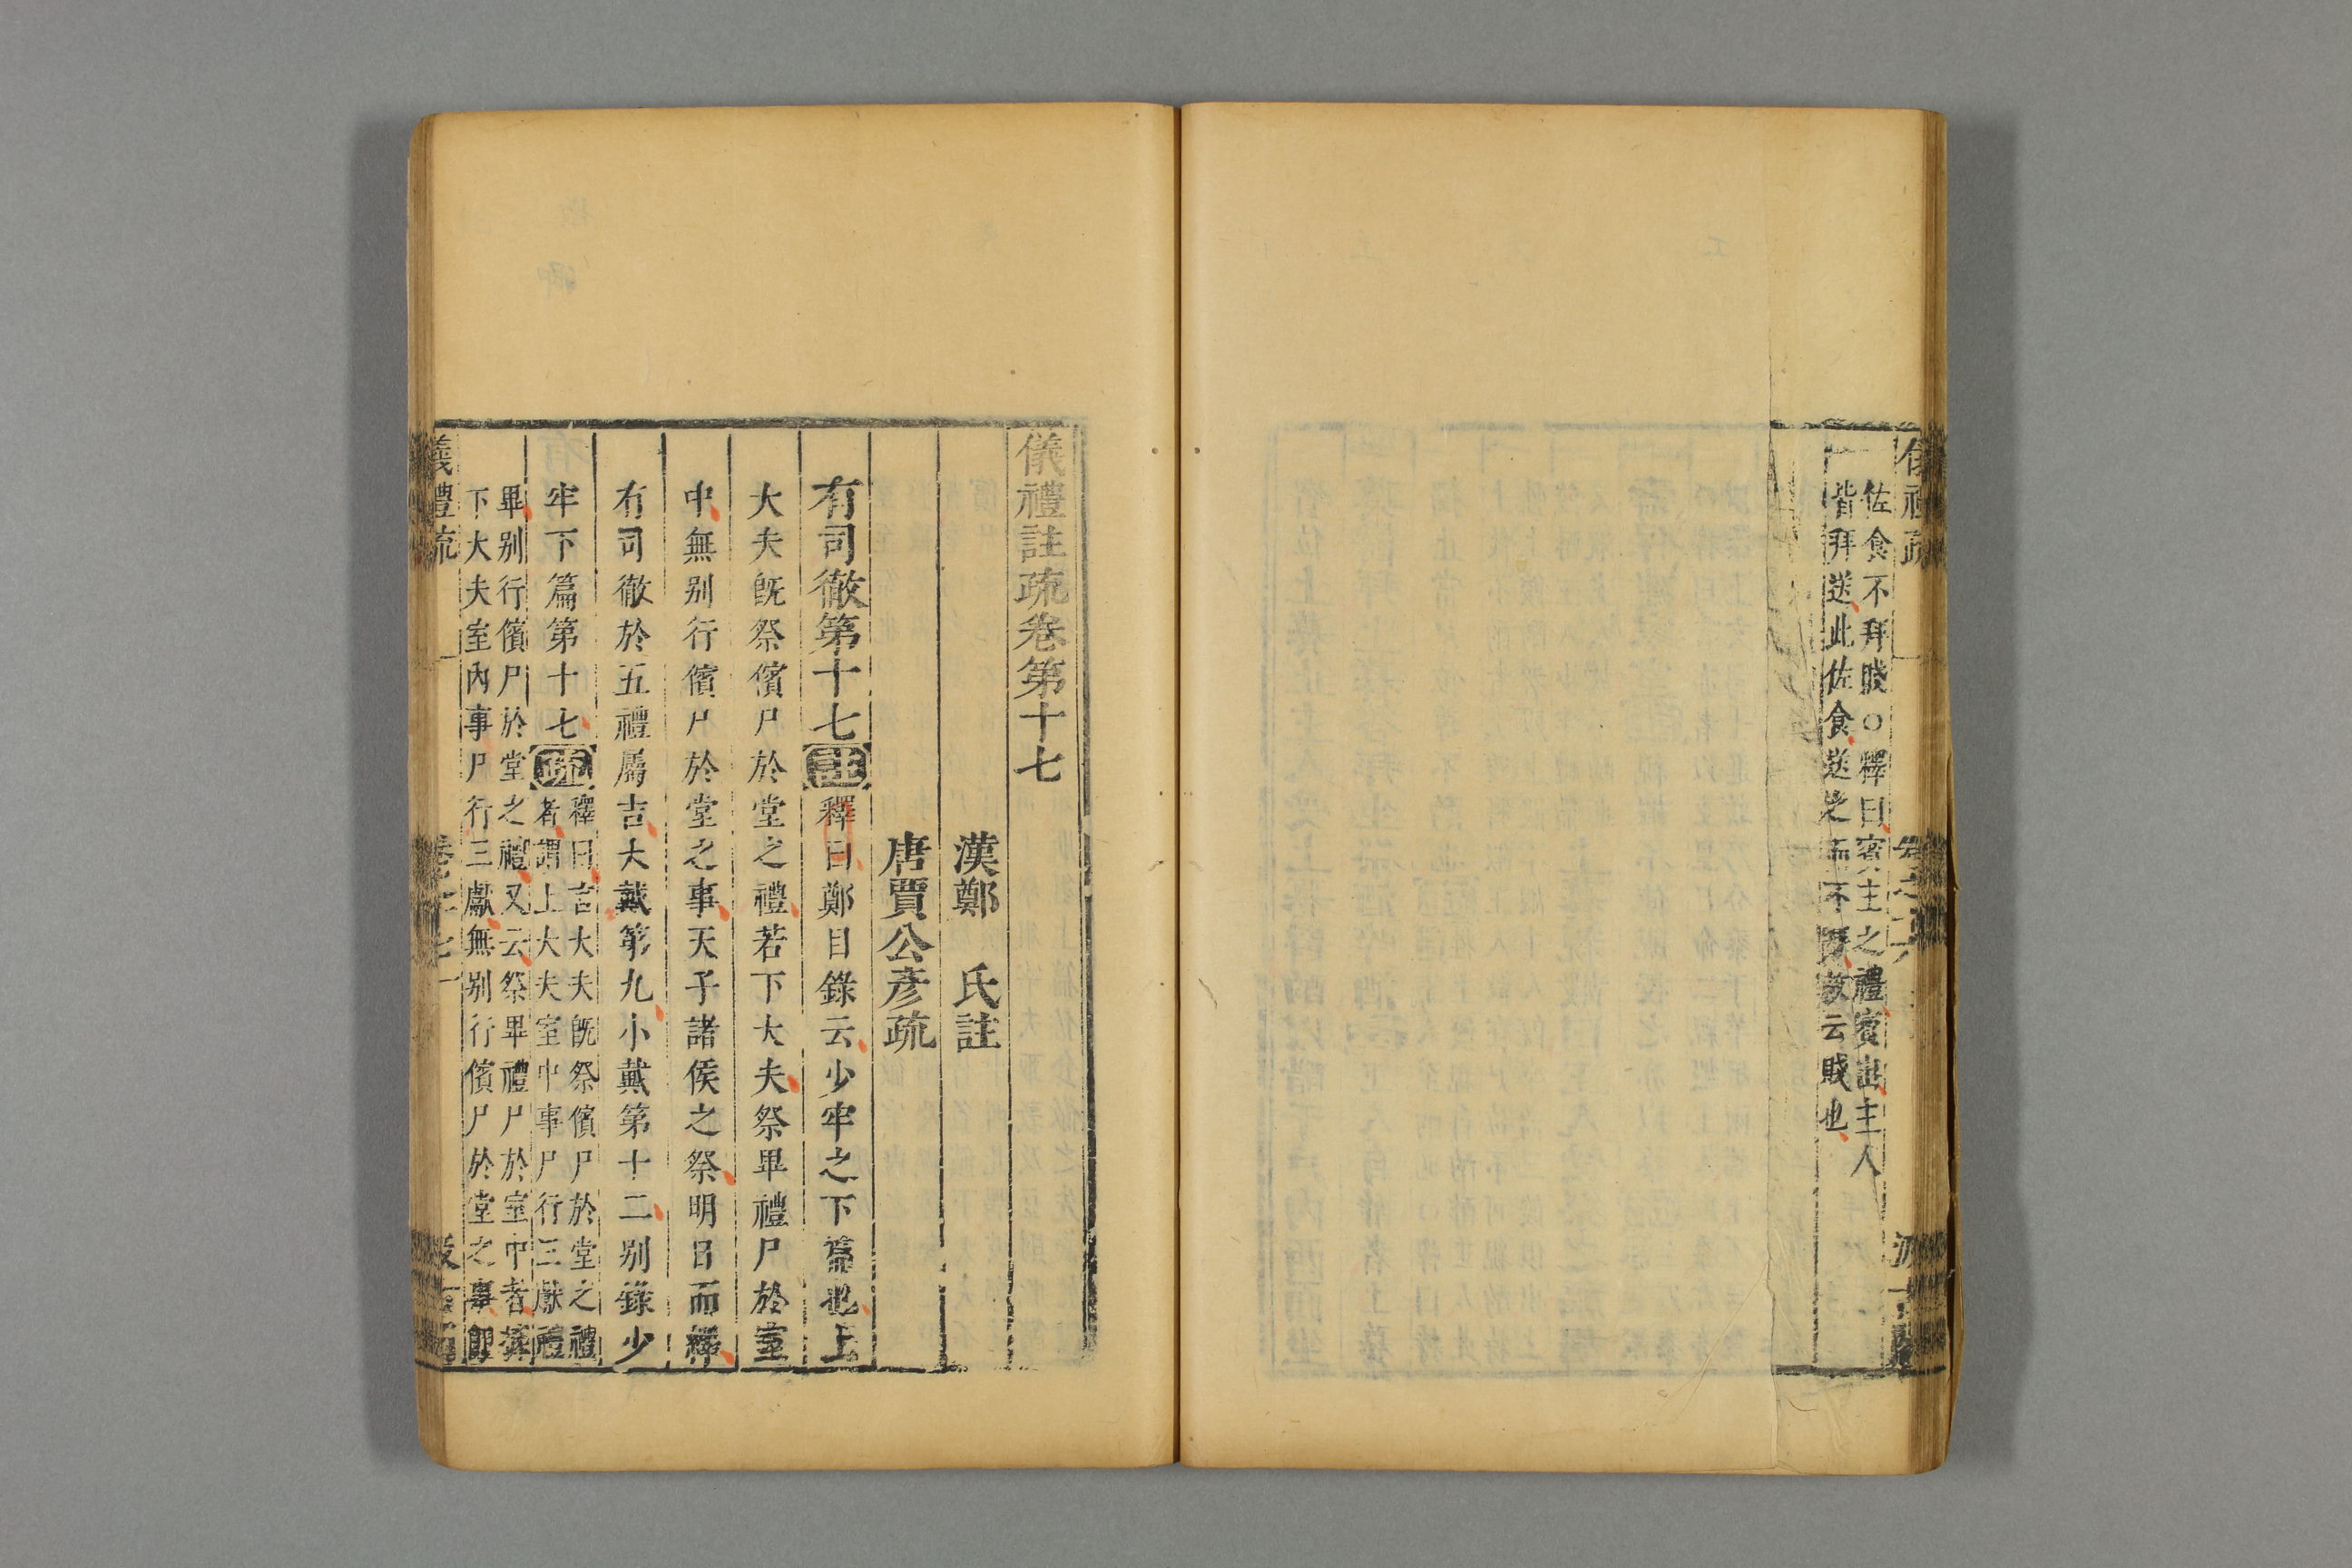 佐食不拜賤○釋曰賓主之禮賓出主人
皆拜送此佐食送之而不拜故云賤也
儀禮註疏卷第十七
漢鄭 氏註
唐賈公彥疏
有司徹第十七註釋曰鄭目錄云少牢之下篇也上
大夫旣祭儐尸於堂之禮若下大夫祭畢禮尸於室
中無别行儐尸於堂之事天子諸侯之祭明日而繹
有司徹於五禮屬吉大戴第九小戴第十二别錄少
牢下篇第十七疏釋曰言大夫旣祭儐尸於堂之禮
者謂上大夫室中事尸行三獻禮
畢别行儐尸於堂之禮又云祭畢禮尸於室中者據
下大夫室內事尸行三獻無别行儐尸於堂之事卽